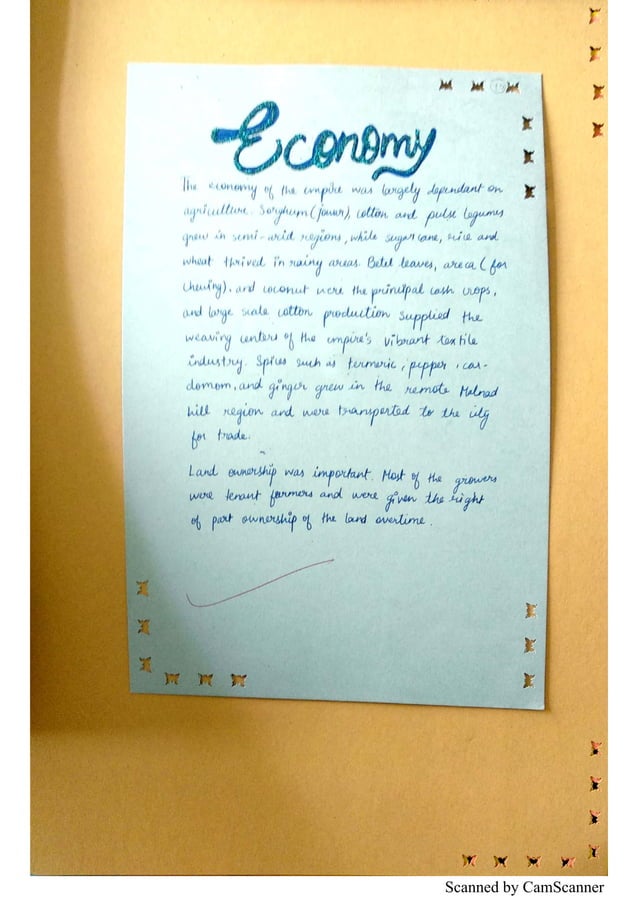 Economy
The economy of the empire was largely dependant on
agriculture. Sorghum (jowar), cotton and pulse legumes
grew in semi-arid regions, while sugarcane, rice and
wheat thrived in rainy areas. Betel leaves, areca (for
chewing), and coconut were the principal cash crops,
and large scale cotton production supplied the
weaving centers of the empire's vibrant textile
industry. Spices such as termeric, pepper, car-
domom, and ginger grew in the remote Malnad
hill region and were transported to the city
for trade.
Land ownership was important. Most of the growers
were tenant farmers and were given the right
of part ownership of the land overtime.
Scanned by CamScanner